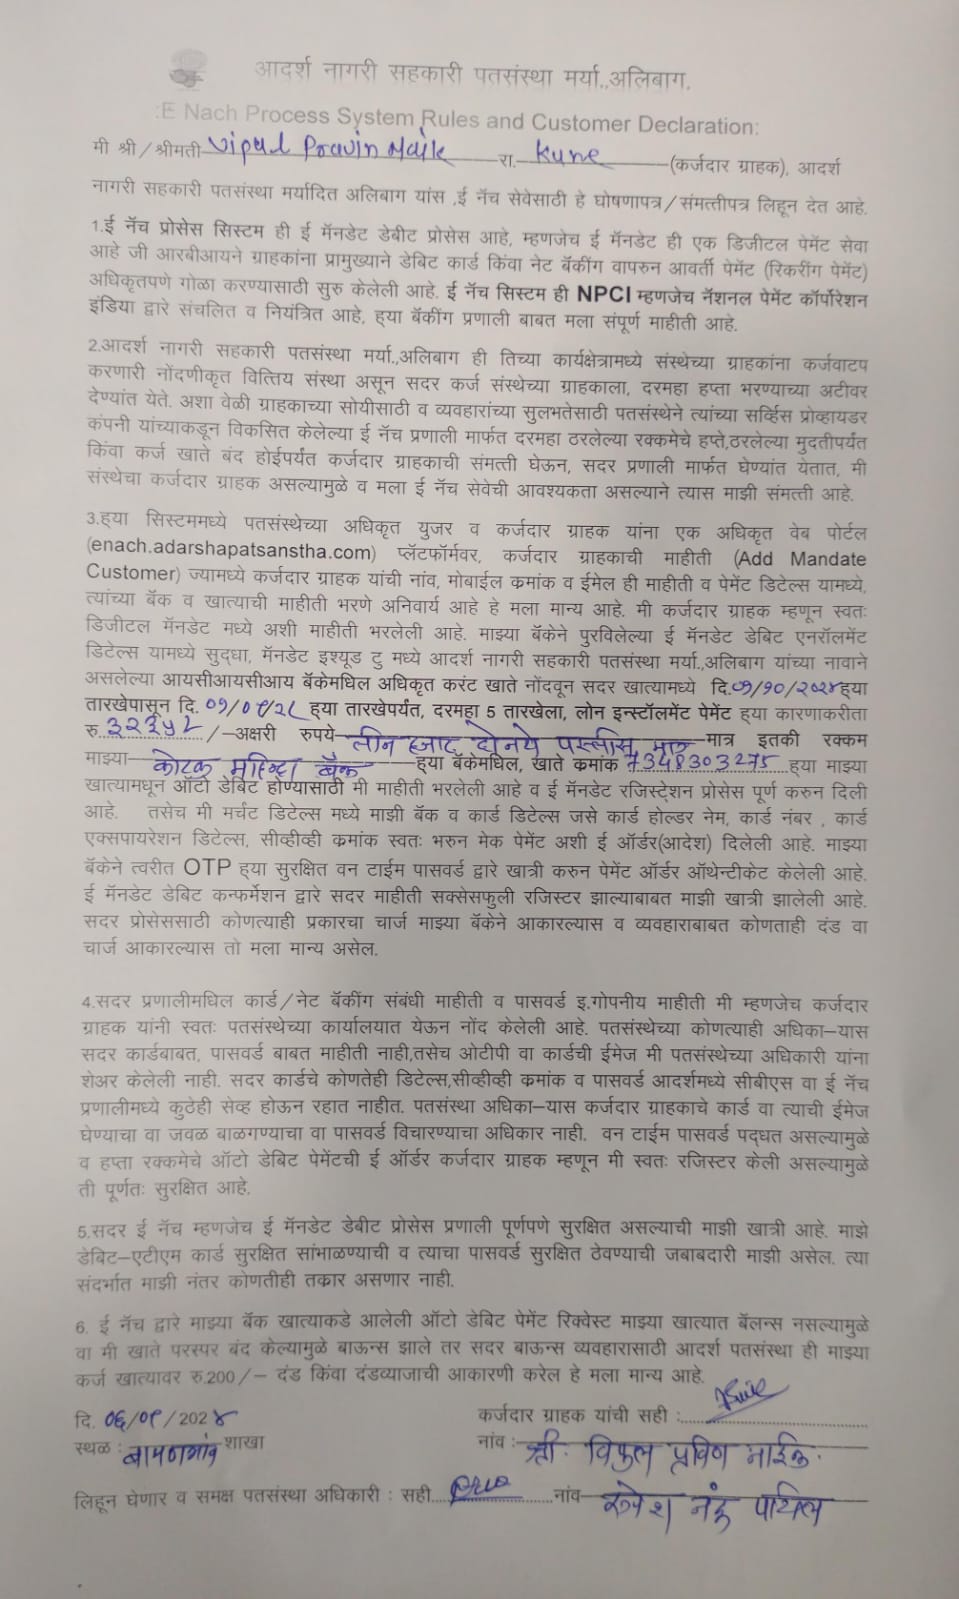 आदर्श नागरी सहकारी पतसंस्था मर्या.,अलिबाग.
:E Nach Process System Rules and Customer Declaration:
मी श्री/श्रीमती Vipul Pravin Naik रा. Kune (कर्जदार ग्राहक), आदर्श
नागरी सहकारी पतसंस्था मर्यादित अलिबाग यांस ,ई नॅच सेवेसाठी हे घोषणापत्र/संमत्तीपत्र लिहून देत आहे.
1.ई नॅच प्रोसेस सिस्टम ही ई मॅनडेट डेबीट प्रोसेस आहे, म्हणजेच ई मॅनडेट ही एक डिजीटल पेमेंट सेवा
आहे जी आरबीआयने ग्राहकांना प्रामुख्याने डेबिट कार्ड किंवा नेट बॅकींग वापरुन आवर्ती पेमेंट (रिकरींग पेमेंट)
अधिकृतपणे गोळा करण्यासाठी सुरु केलेली आहे. ई नॅच सिस्टम ही NPCI म्हणजेच नॅशनल पेमेंट कॉर्पोरेशन
इंडिया द्वारे संचलित व नियंत्रित आहे, ह्या बॅकींग प्रणाली बाबत मला संपूर्ण माहीती आहे.
2.आदर्श नागरी सहकारी पतसंस्था मर्या.,अलिबाग ही तिच्या कार्यक्षेत्रामध्ये संस्थेच्या ग्राहकांना कर्जवाटप
करणारी नोंदणीकृत वित्तिय संस्था असून सदर कर्ज संस्थेच्या ग्राहकाला, दरमहा हप्ता भरण्याच्या अटीवर
देण्यांत येते. अशा वेळी ग्राहकाच्या सोयीसाठी व व्यवहारांच्या सुलभतेसाठी पतसंस्थेने त्यांच्या सर्व्हिस प्रोव्हायडर
कंपनी यांच्याकडून विकसित केलेल्या ई नॅच प्रणाली मार्फत दरमहा ठरलेल्या रक्कमेचे हप्ते,ठरलेल्या मुदतीपर्यंत
किंवा कर्ज खाते बंद होईपर्यंत कर्जदार ग्राहकाची संमत्ती घेऊन, सदर प्रणाली मार्फत घेण्यांत येतात, मी
संस्थेचा कर्जदार ग्राहक असल्यामुळे व मला ई नॅच सेवेची आवश्यकता असल्याने त्यास माझी संमत्ती आहे.
3.ह्या सिस्टममध्ये पतसंस्थेच्या अधिकृत युजर व कर्जदार ग्राहक यांना एक अधिकृत वेब पोर्टल
(enach.adarshapatsanstha.com) प्लॅटफॉर्मवर, कर्जदार ग्राहकाची माहीती (Add Mandate
Customer) ज्यामध्ये कर्जदार ग्राहक यांची नांव, मोबाईल क्रमांक व ईमेल ही माहीती व पेमेंट डिटेल्स यामध्ये,
त्यांच्या बॅक व खात्याची माहीती भरणे अनिवार्य आहे हे मला मान्य आहे. मी कर्जदार ग्राहक म्हणून स्वतः
डिजीटल मॅनडेट मध्ये अशी माहीती भरलेली आहे. माझ्या बॅकेने पुरविलेल्या ई मॅनडेट डेबिट एनरॉलमेंट
डिटेल्स यामध्ये सुद्धा, मॅनडेट इश्यूड टु मध्ये आदर्श नागरी सहकारी पतसंस्था मर्या.,अलिबाग यांच्या नावाने
असलेल्या आयसीआयसीआय बॅकेमधिल अधिकृत करंट खाते नोंदवून सदर खात्यामध्ये दि.०५/१०/२०२४ह्या
तारखेपासून दि. ०५/०९/२८ ह्या तारखेपर्यंत, दरमहा 5 तारखेला, लोन इन्स्टॉलमेंट पेमेंट ह्या कारणाकरीता
रु. /–अक्षरी रुपये– तीन हजार दोनशे मात्र मात्र इतकी रक्कम
माझ्या– कोटक महिंद्रा बँक ह्या बॅकेमधिल, खाते क्रमांक 7348303275 ह्या माझ्या
खात्यामधून ऑटो डेबिट होण्यासाठी मी माहीती भरलेली आहे व ई मॅनडेट रजिस्ट्रेशन प्रोसेस पूर्ण करुन दिली
आहे. तसेच मी मर्चंट डिटेल्स मध्ये माझी बॅक व कार्ड डिटेल्स जसे कार्ड होल्डर नेम, कार्ड नंबर , कार्ड
एक्सपायरेशन डिटेल्स, सीव्हीव्ही क्रमांक स्वतः भरुन मेक पेमेंट अशी ई ऑर्डर(आदेश) दिलेली आहे. माझ्या
बॅकेने त्वरीत OTP ह्या सुरक्षित वन टाईम पासवर्ड द्वारे खात्री करुन पेमेंट ऑर्डर ऑथेन्टीकेट केलेली आहे.
ई मॅनडेट डेबिट कन्फर्मेशन द्वारे सदर माहीती सक्सेसफुली रजिस्टर झाल्याबाबत माझी खात्री झालेली आहे.
सदर प्रोसेससाठी कोणत्याही प्रकारचा चार्ज माझ्या बॅकेने आकारल्यास व व्यवहाराबाबत कोणताही दंड वा
चार्ज आकारल्यास तो मला मान्य असेल.
4.सदर प्रणालीमधिल कार्ड/नेट बॅकींग संबंधी माहीती व पासवर्ड इ.गोपनीय माहीती मी म्हणजेच कर्जदार
ग्राहक यांनी स्वतः पतसंस्थेच्या कार्यालयात येऊन नोंद केलेली आहे. पतसंस्थेच्या कोणत्याही अधिका–यास
सदर कार्डबाबत, पासवर्ड बाबत माहीती नाही,तसेच ओटीपी वा कार्डची ईमेज मी पतसंस्थेच्या अधिकारी यांना
शेअर केलेली नाही. सदर कार्डचे कोणतेही डिटेल्स,सीव्हीव्ही क्रमांक व पासवर्ड आदर्शमध्ये सीबीएस वा ई नॅच
प्रणालीमध्ये कुठेही सेव्ह होऊन रहात नाहीत. पतसंस्था अधिका–यास कर्जदार ग्राहकाचे कार्ड वा त्याची ईमेज
घेण्याचा वा जवळ बाळगण्याचा वा पासवर्ड विचारण्याचा अधिकार नाही. वन टाईम पासवर्ड पद्धत असल्यामुळे
व हप्ता रक्कमेचे ऑटो डेबिट पेमेंटची ई ऑर्डर कर्जदार ग्राहक म्हणून मी स्वतः रजिस्टर केली असल्यामुळे
ती पूर्णतः सुरक्षित आहे.
5.सदर ई नॅच म्हणजेच ई मॅनडेट डेबीट प्रोसेस प्रणाली पूर्णपणे सुरक्षित असल्याची माझी खात्री आहे. माझे
डेबिट–एटीएम कार्ड सुरक्षित सांभाळण्याची व त्याचा पासवर्ड सुरक्षित ठेवण्याची जबाबदारी माझी असेल. त्या
संदर्भात माझी नंतर कोणतीही तक्रार असणार नाही.
6. ई नॅच द्वारे माझ्या बॅक खात्याकडे आलेली ऑटो डेबिट पेमेंट रिक्वेस्ट माझ्या खात्यात बॅलन्स नसल्यामुळे
वा मी खाते परस्पर बंद केल्यामुळे बाऊन्स झाले तर सदर बाऊन्स व्यवहारासाठी आदर्श पतसंस्था ही माझ्या
कर्ज खात्यावर रु.200/– दंड किंवा दंडव्याजाची आकारणी करेल हे मला मान्य आहे.
दि. ०६/०९/2024 कर्जदार ग्राहक यांची सही :
स्थळ : बामणगांव शाखा नांव :– श्री. विपुल प्रविण नाईक.
लिहून घेणार व समक्ष पतसंस्था अधिकारी : सही नांव– पाटील